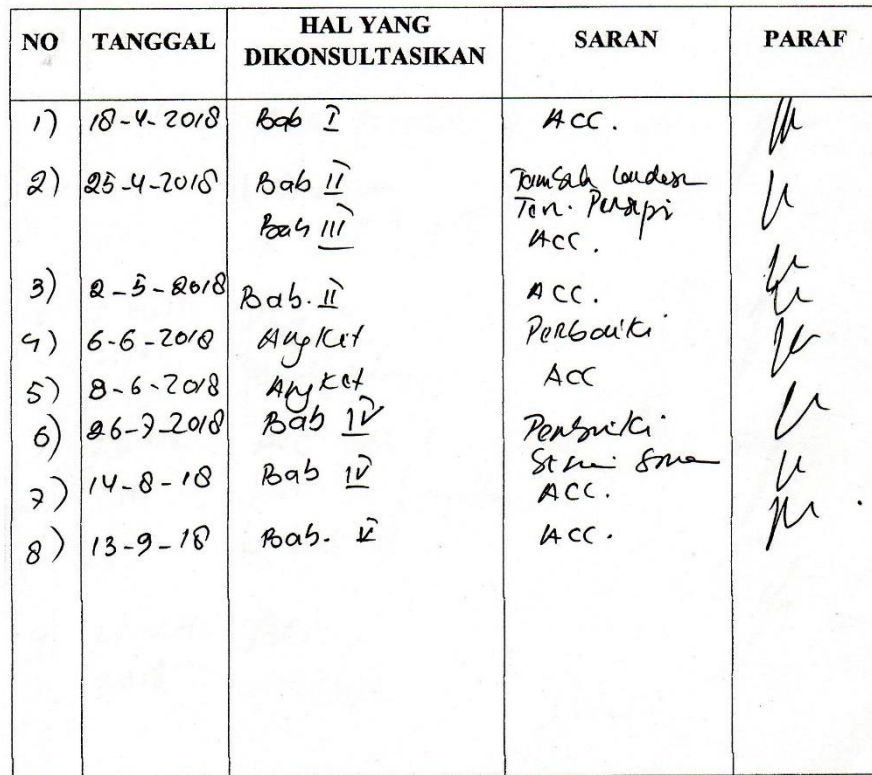 NO TANGGAL HAL YANG DIKONSULTASIKAN SARAN PARAF
1) 18-4-2018 Bab I ACC.
2) 25-4-2018 Bab II Tambah
Bab III ACC.
3) 2-5-2018 Bab. II ACC.
4) 6-6-2018 Angket Perbaiki
5) 8-6-2018 Angket ACC
6) 26-7-2018 Bab IV Perbaiki
7) 14-8-18 Bab IV ACC.
8) 13-9-18 Bab. V ACC.